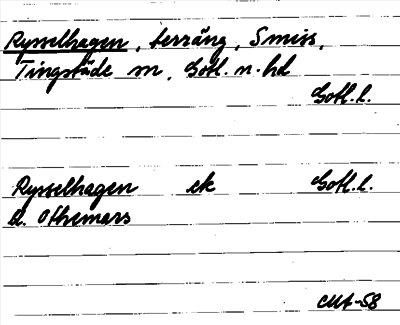 Rysselhagen, terräng, Smiss,
Tingstäde sn, Gotl. n. hd
Gotl. l.
Rysselhagen ek Gotl. l.
d. Othemars
CMA-58